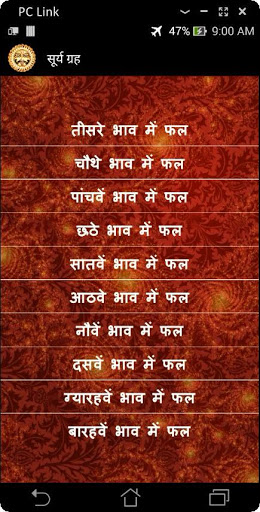 PC Link
47% 9:00 AM
सूर्य ग्रह
तीसरे भाव में फल
चौथे भाव में फल
पांचवें भाव में फल
छठे भाव में फल
सातवें भाव में फल
आठवे भाव में फल
नौवें भाव में फल
दसवें भाव में फल
ग्यारहवें भाव में फल
बारहवें भाव में फल